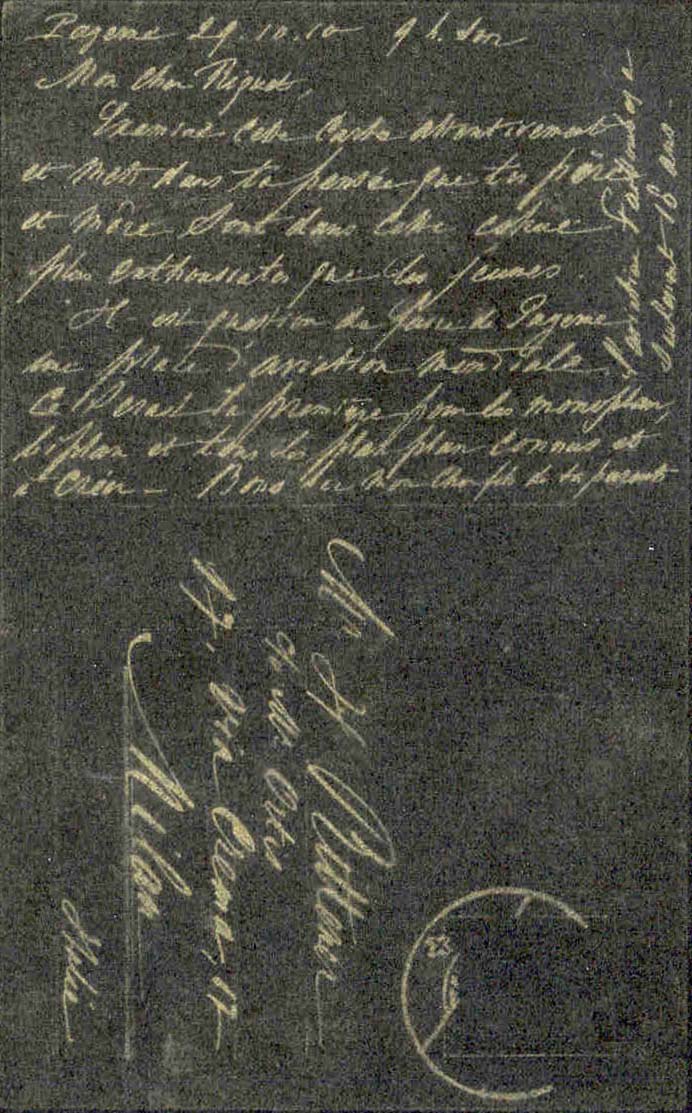 Payerne 29.10.10 9 h. Soir
Mon Cher Riquet,
Examine Cette Carte attentivement
et Mets dans ta pensée que tes père
et mère Sont dans Cette
plus enthousiastes que les jeunes.
Il est question de faire de Payerne
une place d'aviation mondiale
Ce Serait la première pour les monoplan,
biplan et tous les plan plan connus et
à Créer - Bons de Mon Cher fils de ta parents
L'aviateur
18 ans.
Mr H.
17. Via Crema, 17
Milan
Italie
22